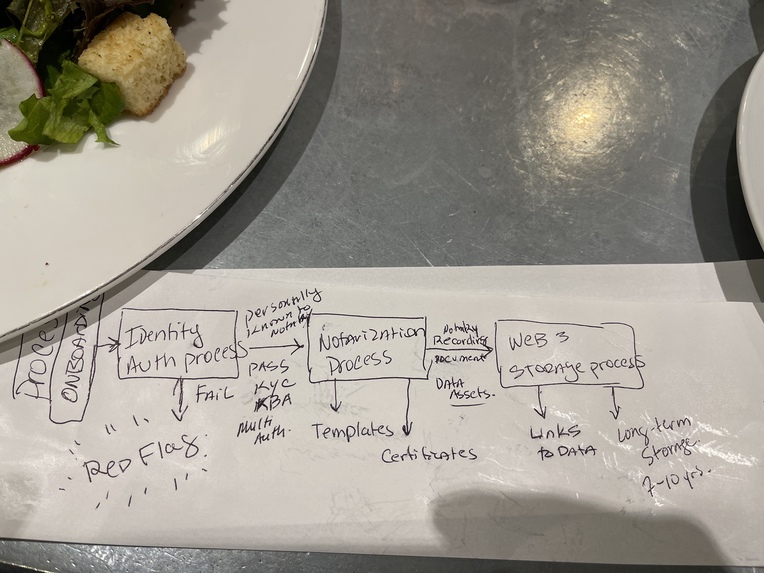 ONBOARDING
Identity
Auth process
FAIL
Red Flag
personally
known to
Notary
PASS
KYC
KBA
Multi
Auth.
Notarization
Process
Templates
Certificates
Notary
Recording
Document
DATA
Assets.
WeB 3
Storage process
LINKS
to DATA
Long-term
Storage.
7-10 yrs.